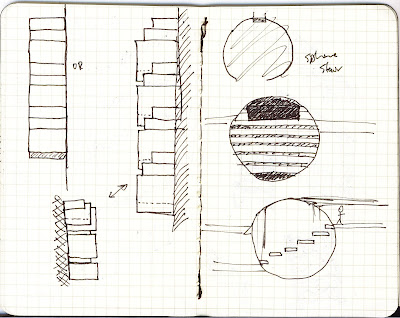 OR
sphere
stair